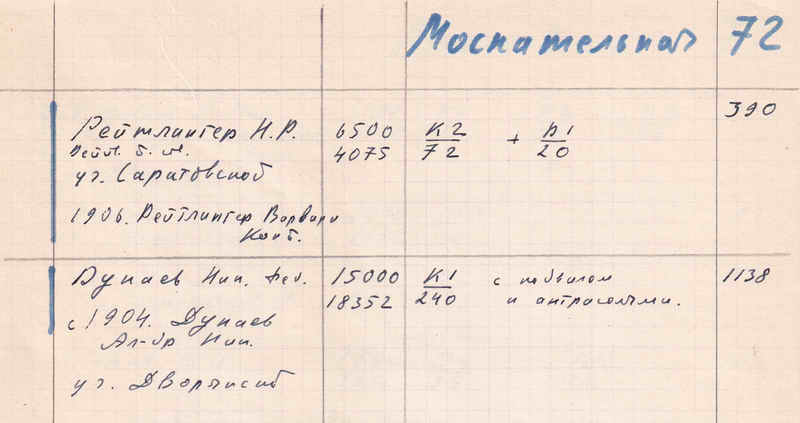 Москательная 72
390
Рейтлингер Н.Р. 6500 К2/72 + Д1/20
4075
уг. Саратовской
1906. Рейтлингер Варвара
Конст.
Дунаев Ник. Фед. 15000 К1/240 с подвалом 1138
18352 и антресолями.
с 1904. Дунаев
Ал-др Ник.
уг. Дворянской